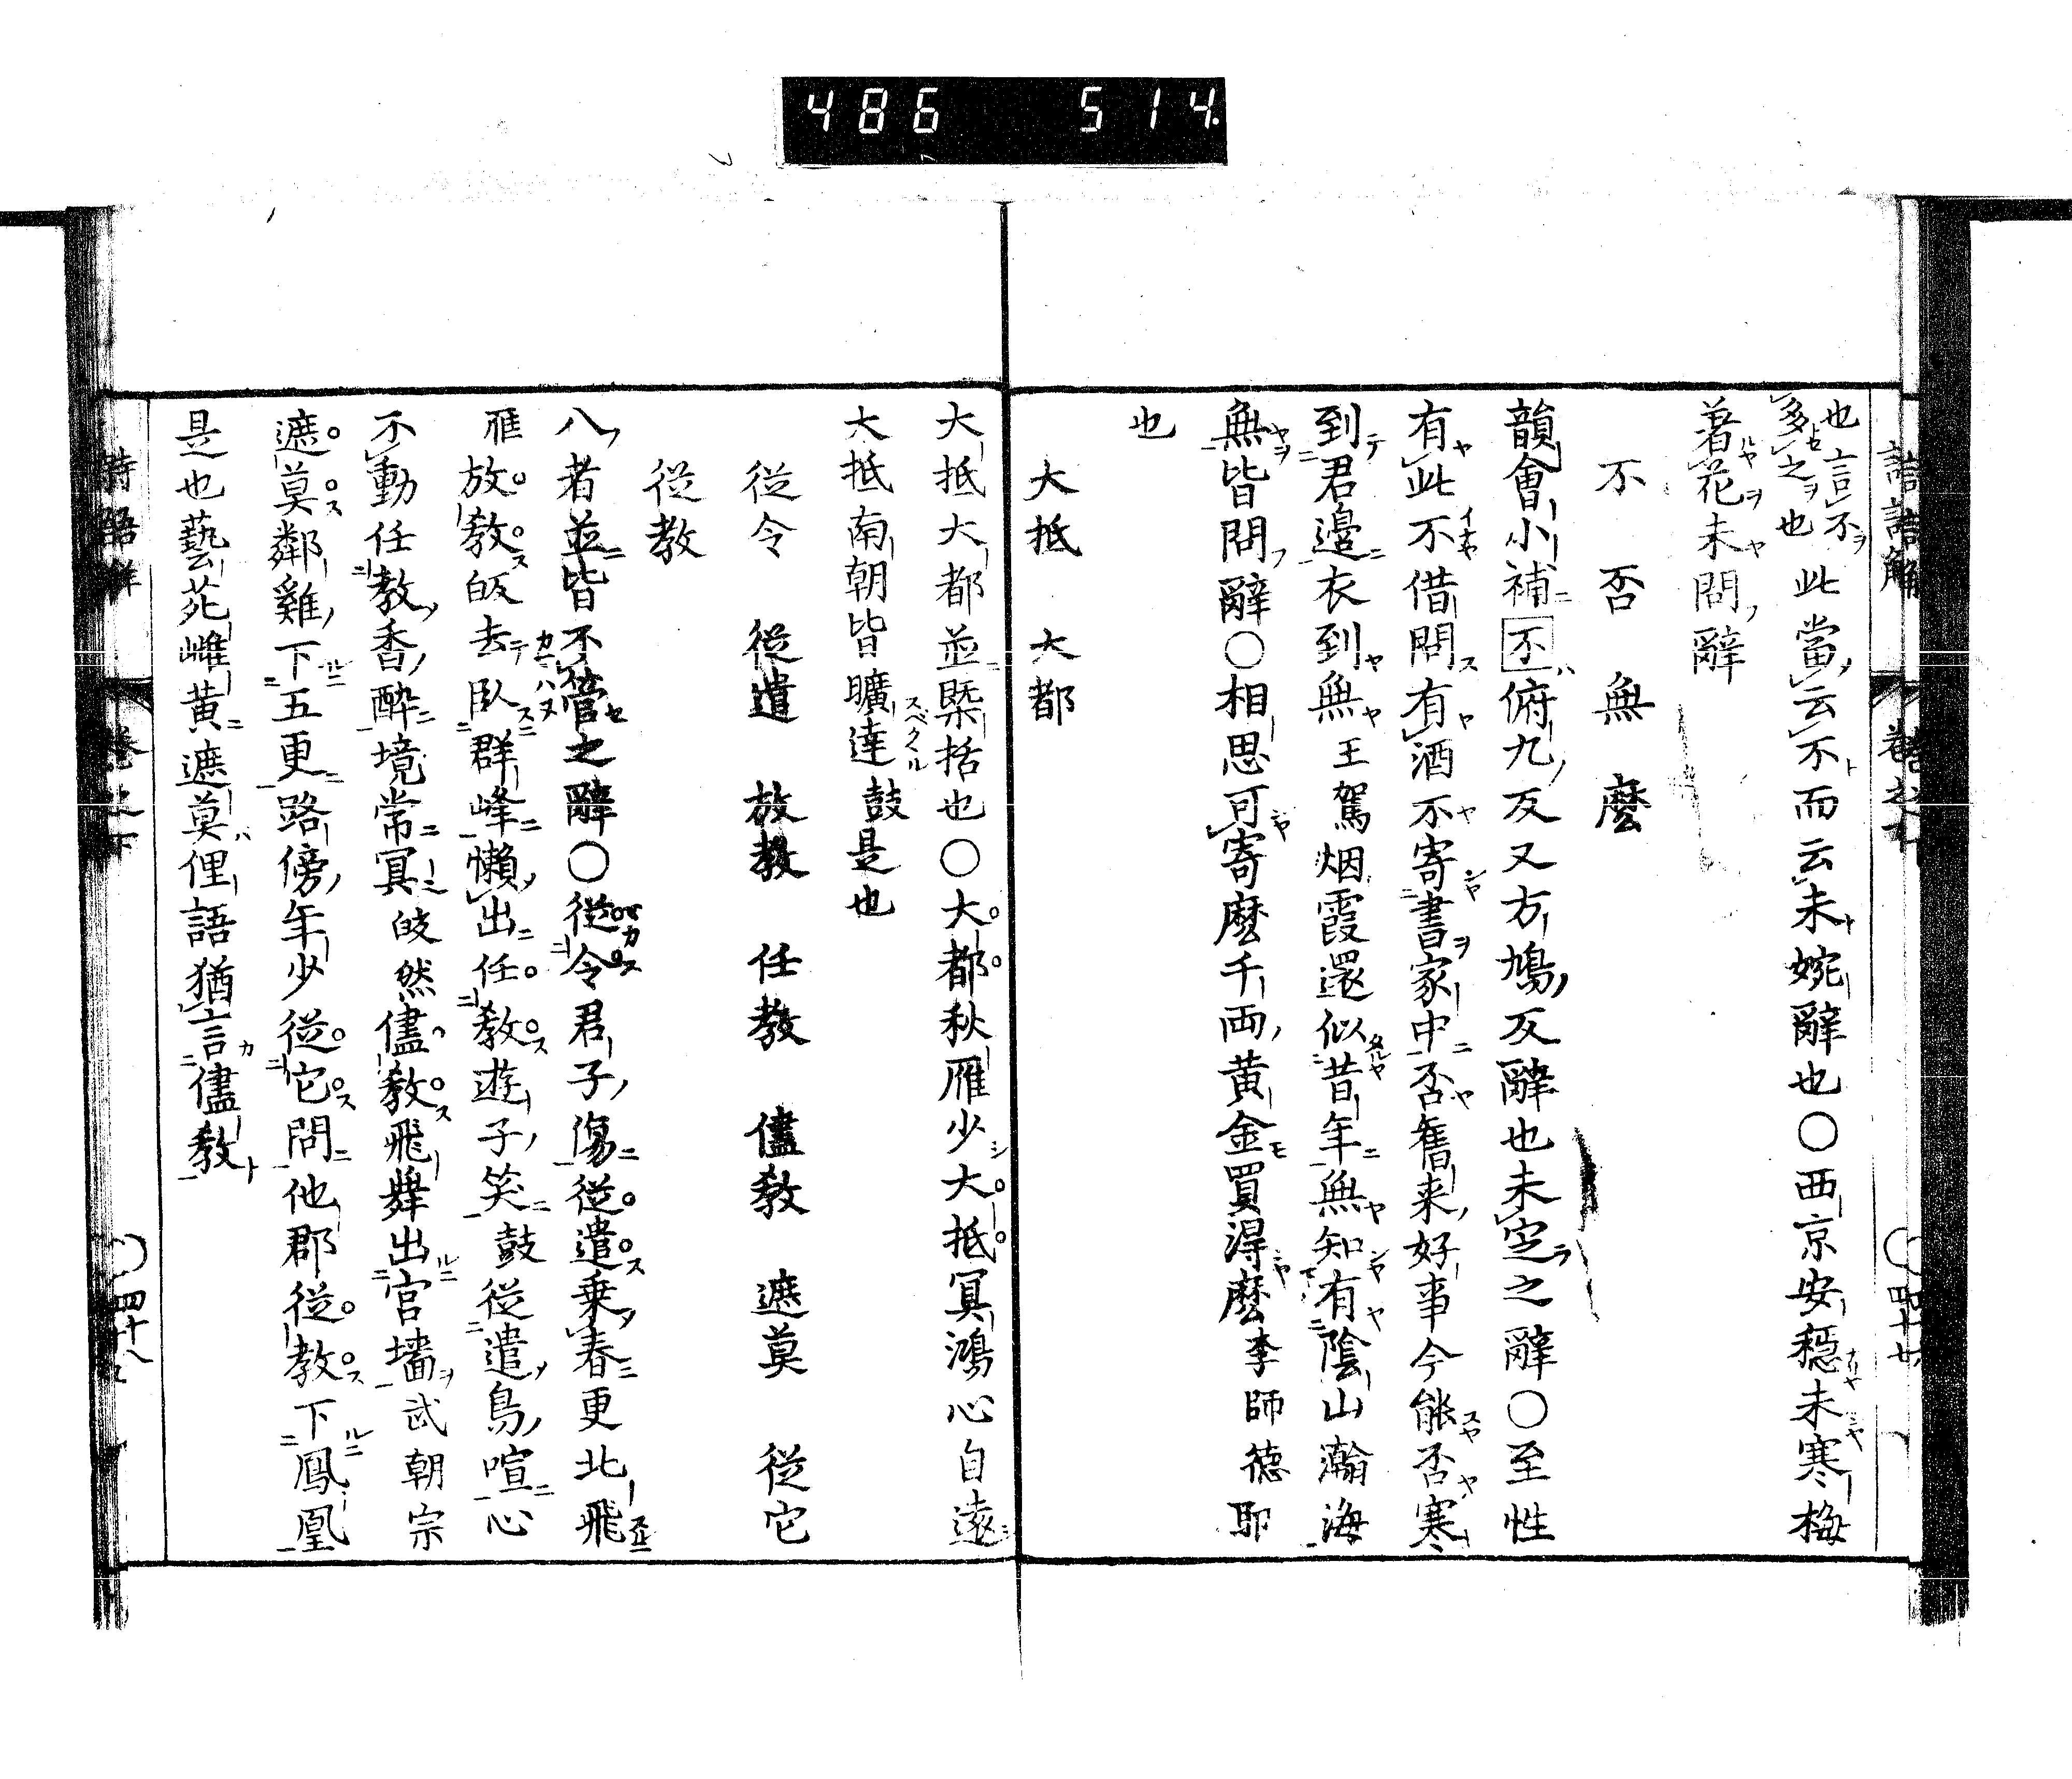 486 514.
詩語解 卷之下 四十七
也言不多之也此當云不而云未婉辭也○西京安穩未寒梅
著花未問辭
不 否 無 麼
韻會小補不俯九反又方鳩反辭也未定之辭○至性
有此不借問有酒不寄書家中否舊来好事今能否寒
到君邊衣到無王駕烟霞還似昔年無知有陰山瀚海
無皆問辭○相思可寄麼千両黄金買得麼李師德耶
也
大抵 大都
大抵大都並槩括也○大都秋雁少大抵冥鴻心自遠
大抵南朝皆曠達鼓是也
從令 從遣 放教 任教 儘教 遮莫 從它
從教
八者並皆不管之辭○從令君子傷從遣乗春更北飛
雁放教皈去臥群峰懶出任教遊子笑鼓從遣鳥喧心
不動任教香酔境常冥皎然儘教飛舞出宮墻武朝宗
遮莫鄰雞下五更路傍年少從它問他郡從教下鳳凰
是也藝苑雌黄遮莫俚語猶言儘教
詩語解 卷之下 四十八